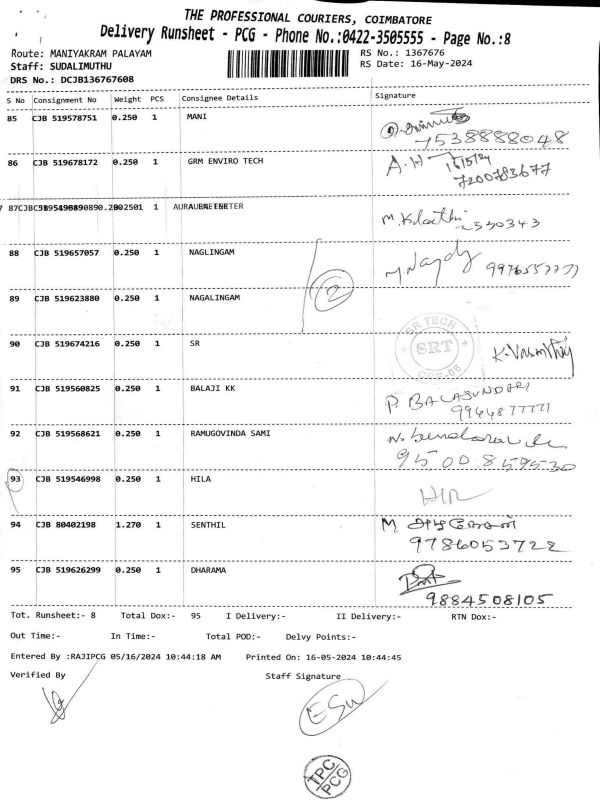 THE PROFESSIONAL COURIERS, COIMBATORE
Delivery Runsheet - PCG - Phone No.:0422-3505555 - Page No.:8
Route: MANIYAKRAM PALAYAM RS No.: 1367676
Staff: SUDALIMUTHU RS Date: 16-May-2024
DRS No.: DCJB136767608
S No Consignment No Weight PCS Consignee Details Signature
85 CJB 519578751 0.250 1 MANI
7538888048
86 CJB 519678172 0.250 1 GRM ENVIRO TECH A.H 16/5/24
7200783677
87 1
88 CJB 519657057 0.250 1 NAGLINGAM
2
89 CJB 519623880 0.250 1 NAGALINGAM
SR TECH
90 CJB 519674216 0.250 1 SR SRT K.Vasanthy
CBE-06
91 CJB 519560825 0.250 1 BALAJI KK P. BALASUNDARI
9944877771
92 CJB 519568621 0.250 1 RAMUGOVINDA SAMI
9500859530
93 CJB 519546998 0.250 1 HILA
94 CJB 80402198 1.270 1 SENTHIL M
9786053722
95 CJB 519626299 0.250 1 DHARAMA
9884508105
Tot. Runsheet:- 8 Total Dox:- 95 I Delivery:- II Delivery:- RTN Dox:-
Out Time:- In Time:- Total POD:- Delvy Points:-
Entered By :RAJIPCG 05/16/2024 10:44:18 AM Printed On: 16-05-2024 10:44:45
Verified By Staff Signature
TPC
PCG